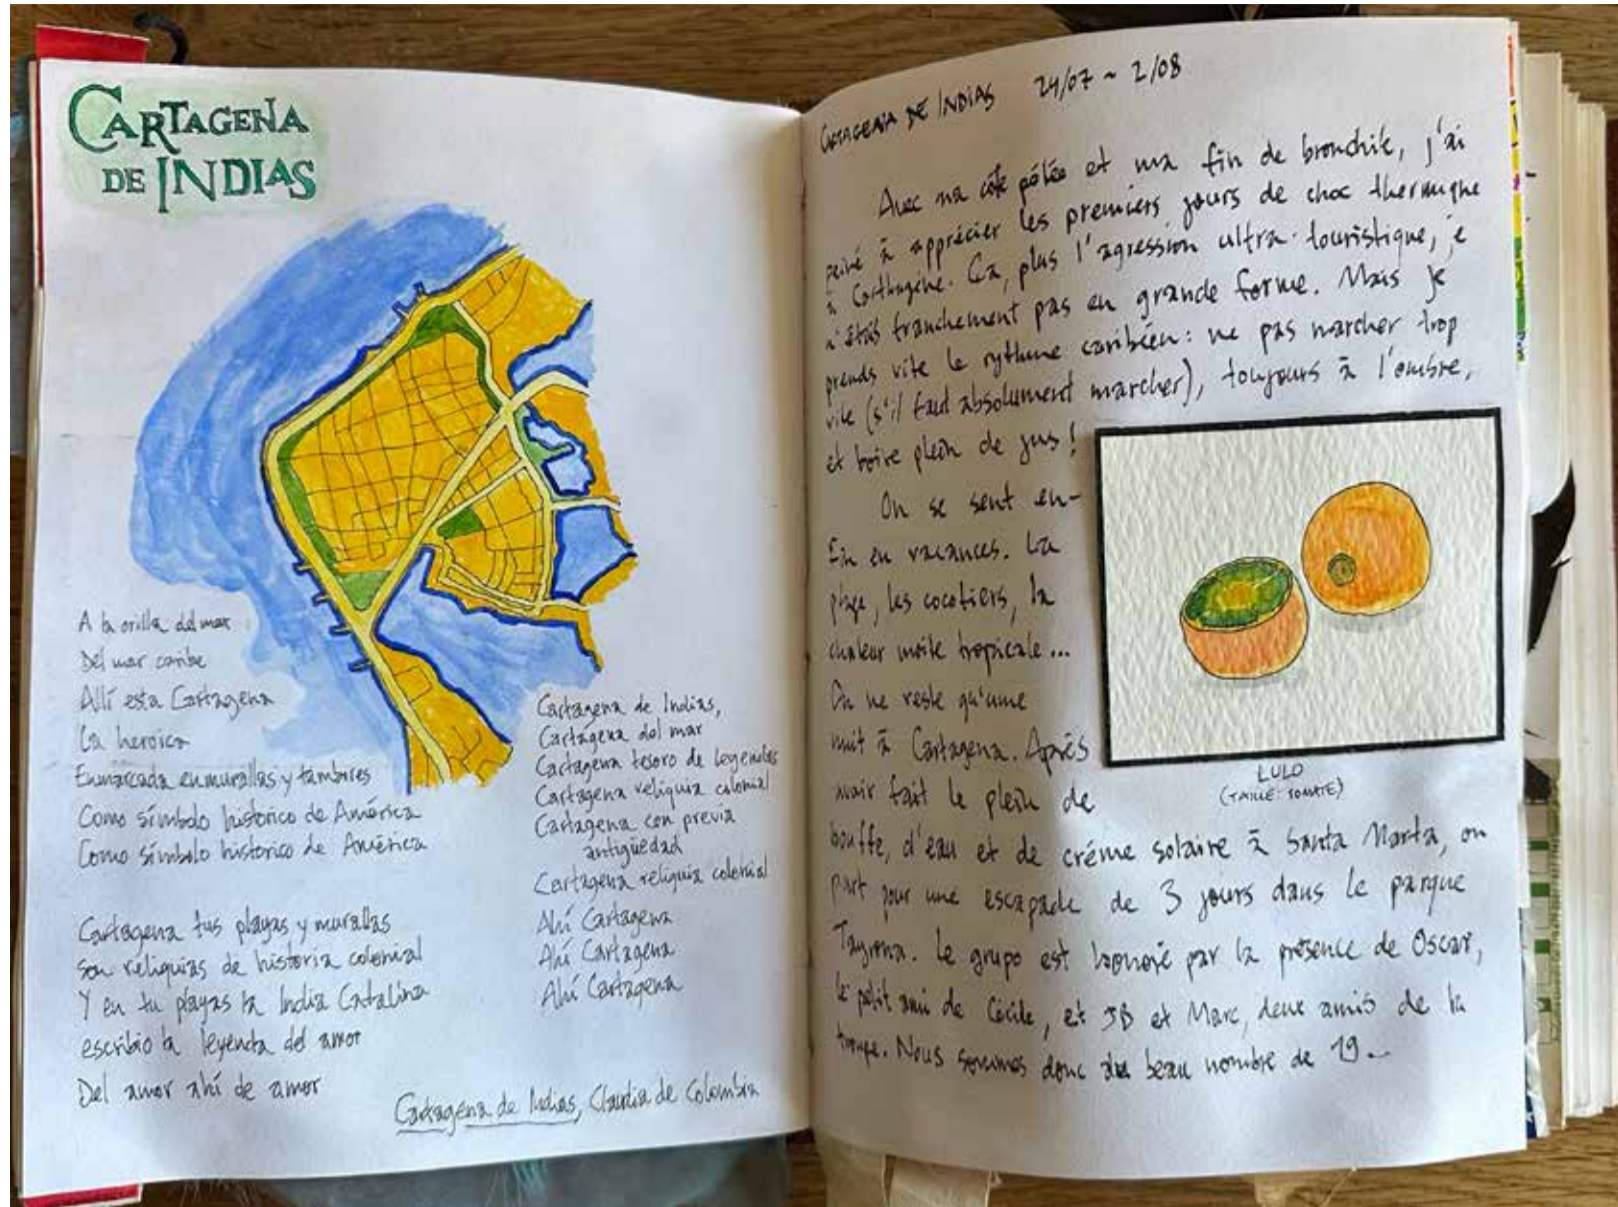 CARTAGENA
DE INDIAS
A la orilla del mar
Del mar caribe
Allí esta Cartagena
La heroica
Enmarcada en murallas y tambores
Como símbolo historico de América
Como símbolo historico de América
Cartagena tus playas y murallas
son reliquias de historia colonial
Y en tu playas la India Catalina
escribio la leyenda del amor
Del amor ahí de amor
Cartagena de Indias,
Cartagena del mar
Cartagena tesoro de legendas
Cartagena reliquia colonial
Cartagena con previa
antigüedad
Cartagena reliquia colonial
Ahí Cartagena
Ahí Cartagena
Ahí Cartagena
Cartagena de Indias, Claudia de Colombia
CARTAGENA DE INDIAS 24/07 ~ 2/08
Avec ma côte pétée et ma fin de bronchite, j'ai
peiné à apprécier les premiers jours de choc thermique
à Carthagène. Ca, plus l'agression ultra-touristique, je
n'étais franchement pas en grande forme. Mais je
prends vite le rythme caribéen: ne pas marcher trop
vite (s'il faut absolument marcher), toujours à l'ombre,
et boire plein de jus!
On se sent en-
fin en vacances. La
plage, les cocotiers, la
chaleur moite tropicale...
On ne reste qu'une
nuit à Cartagena. Après
avoir fait le plein de
bouffe, d'eau et de crème solaire à Santa Marta, on
part pour une escapade de 3 jours dans le parque
Tayrona. Le grupo est honoré par la présence de Oscar,
le petit ami de Cécile, et JB et Marc, deux amis de la
troupe. Nous sommes donc au beau nombre de 19...
LULO
(TAILLE: TOMATE)